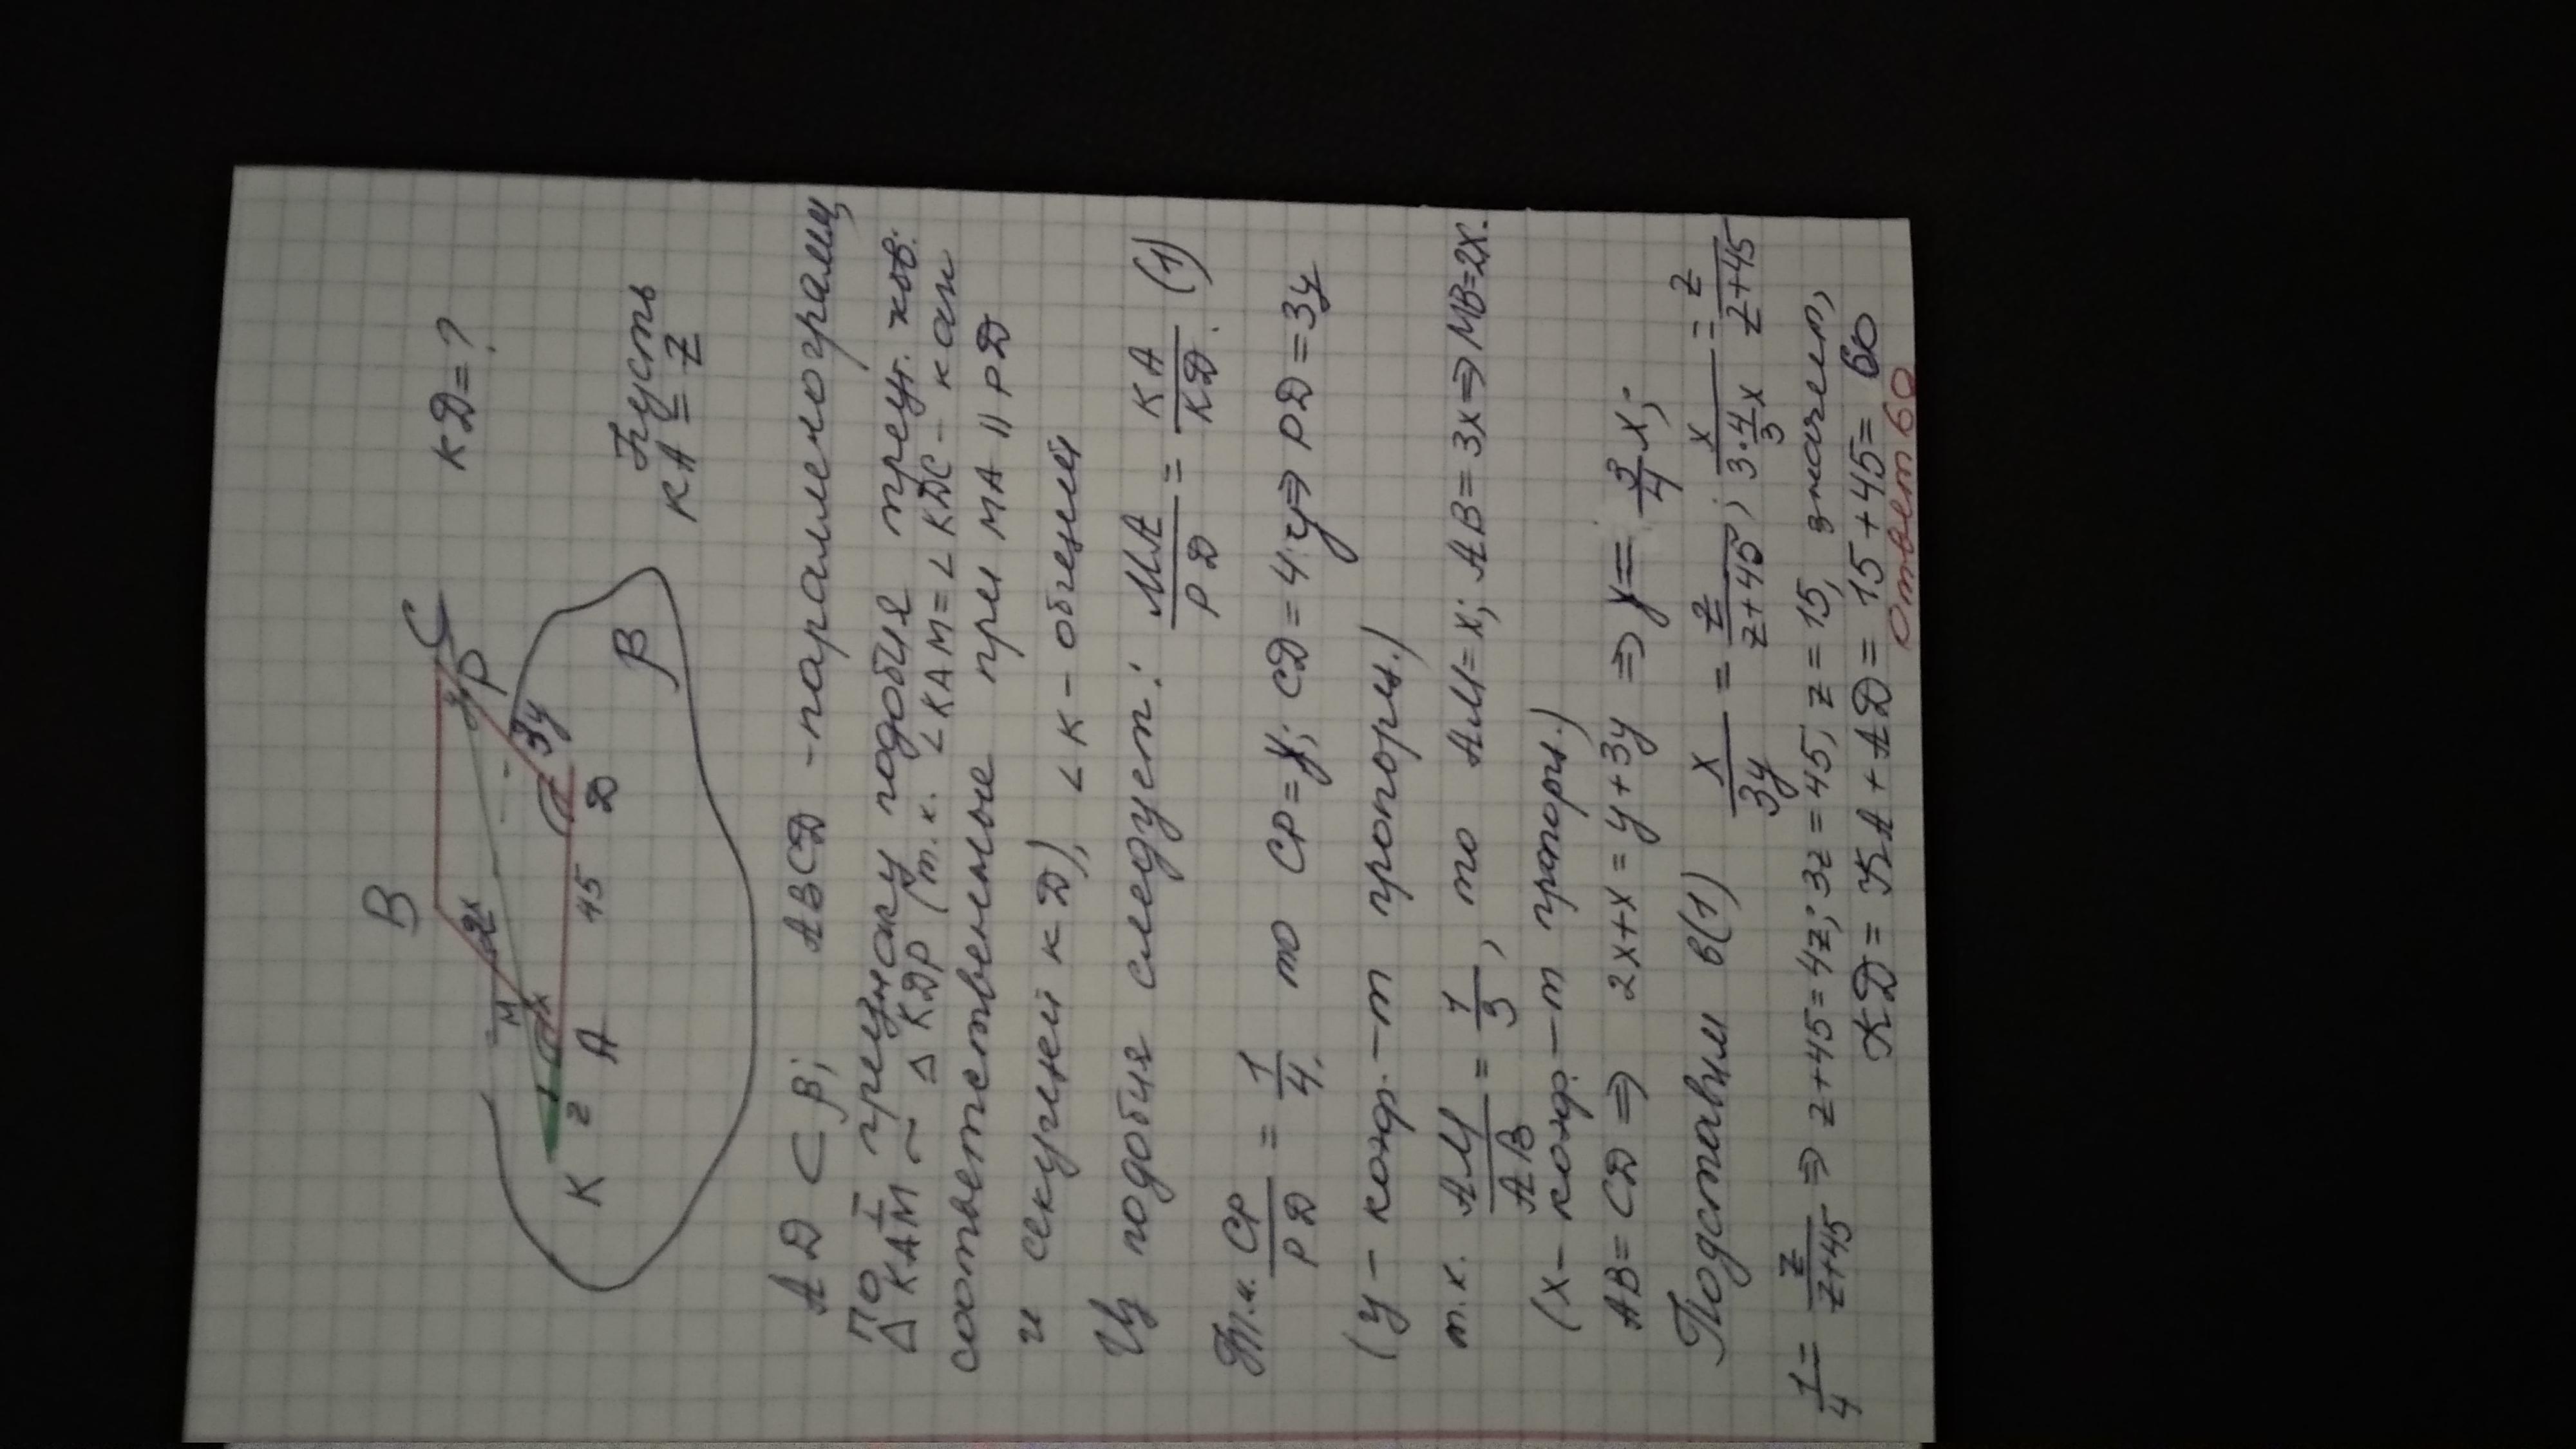 KD=?
B
C
P
y
2x
M
x
3y
Пусть
KA = z
K
z
A
45
D
β
AD ⊂ β; ABCD - параллелограмм,
По I признаку подобия треуг-ков:
Δ KAM ~ Δ KDP (т.к. ∠KAM = ∠KDC - как
соответственные при MA || PD
и секущей KD), ∠K - общий
Из подобия следует: MA/PD = KA/KD. (1)
Т.к. CP/PD = 1/4, то CP = y; CD = 4y ⇒ PD = 3y
(y - коэф.-т пропорц.)
т.к. AM/AB = 1/3, то AM = x; AB = 3x ⇒ MB = 2x.
(x - коэф.-т пропорц.)
AB = CD ⇒ 2x+x = y+3y ⇒ y = 3/4 x;
Подставим в (1) x/3y = z/z+45; x/3·4/3x = z/z+45
1/4 = z/z+45 ⇒ z+45=4z; 3z=45; z=15, значит,
KD = KA + AD = 15+45= 60
Ответ 60